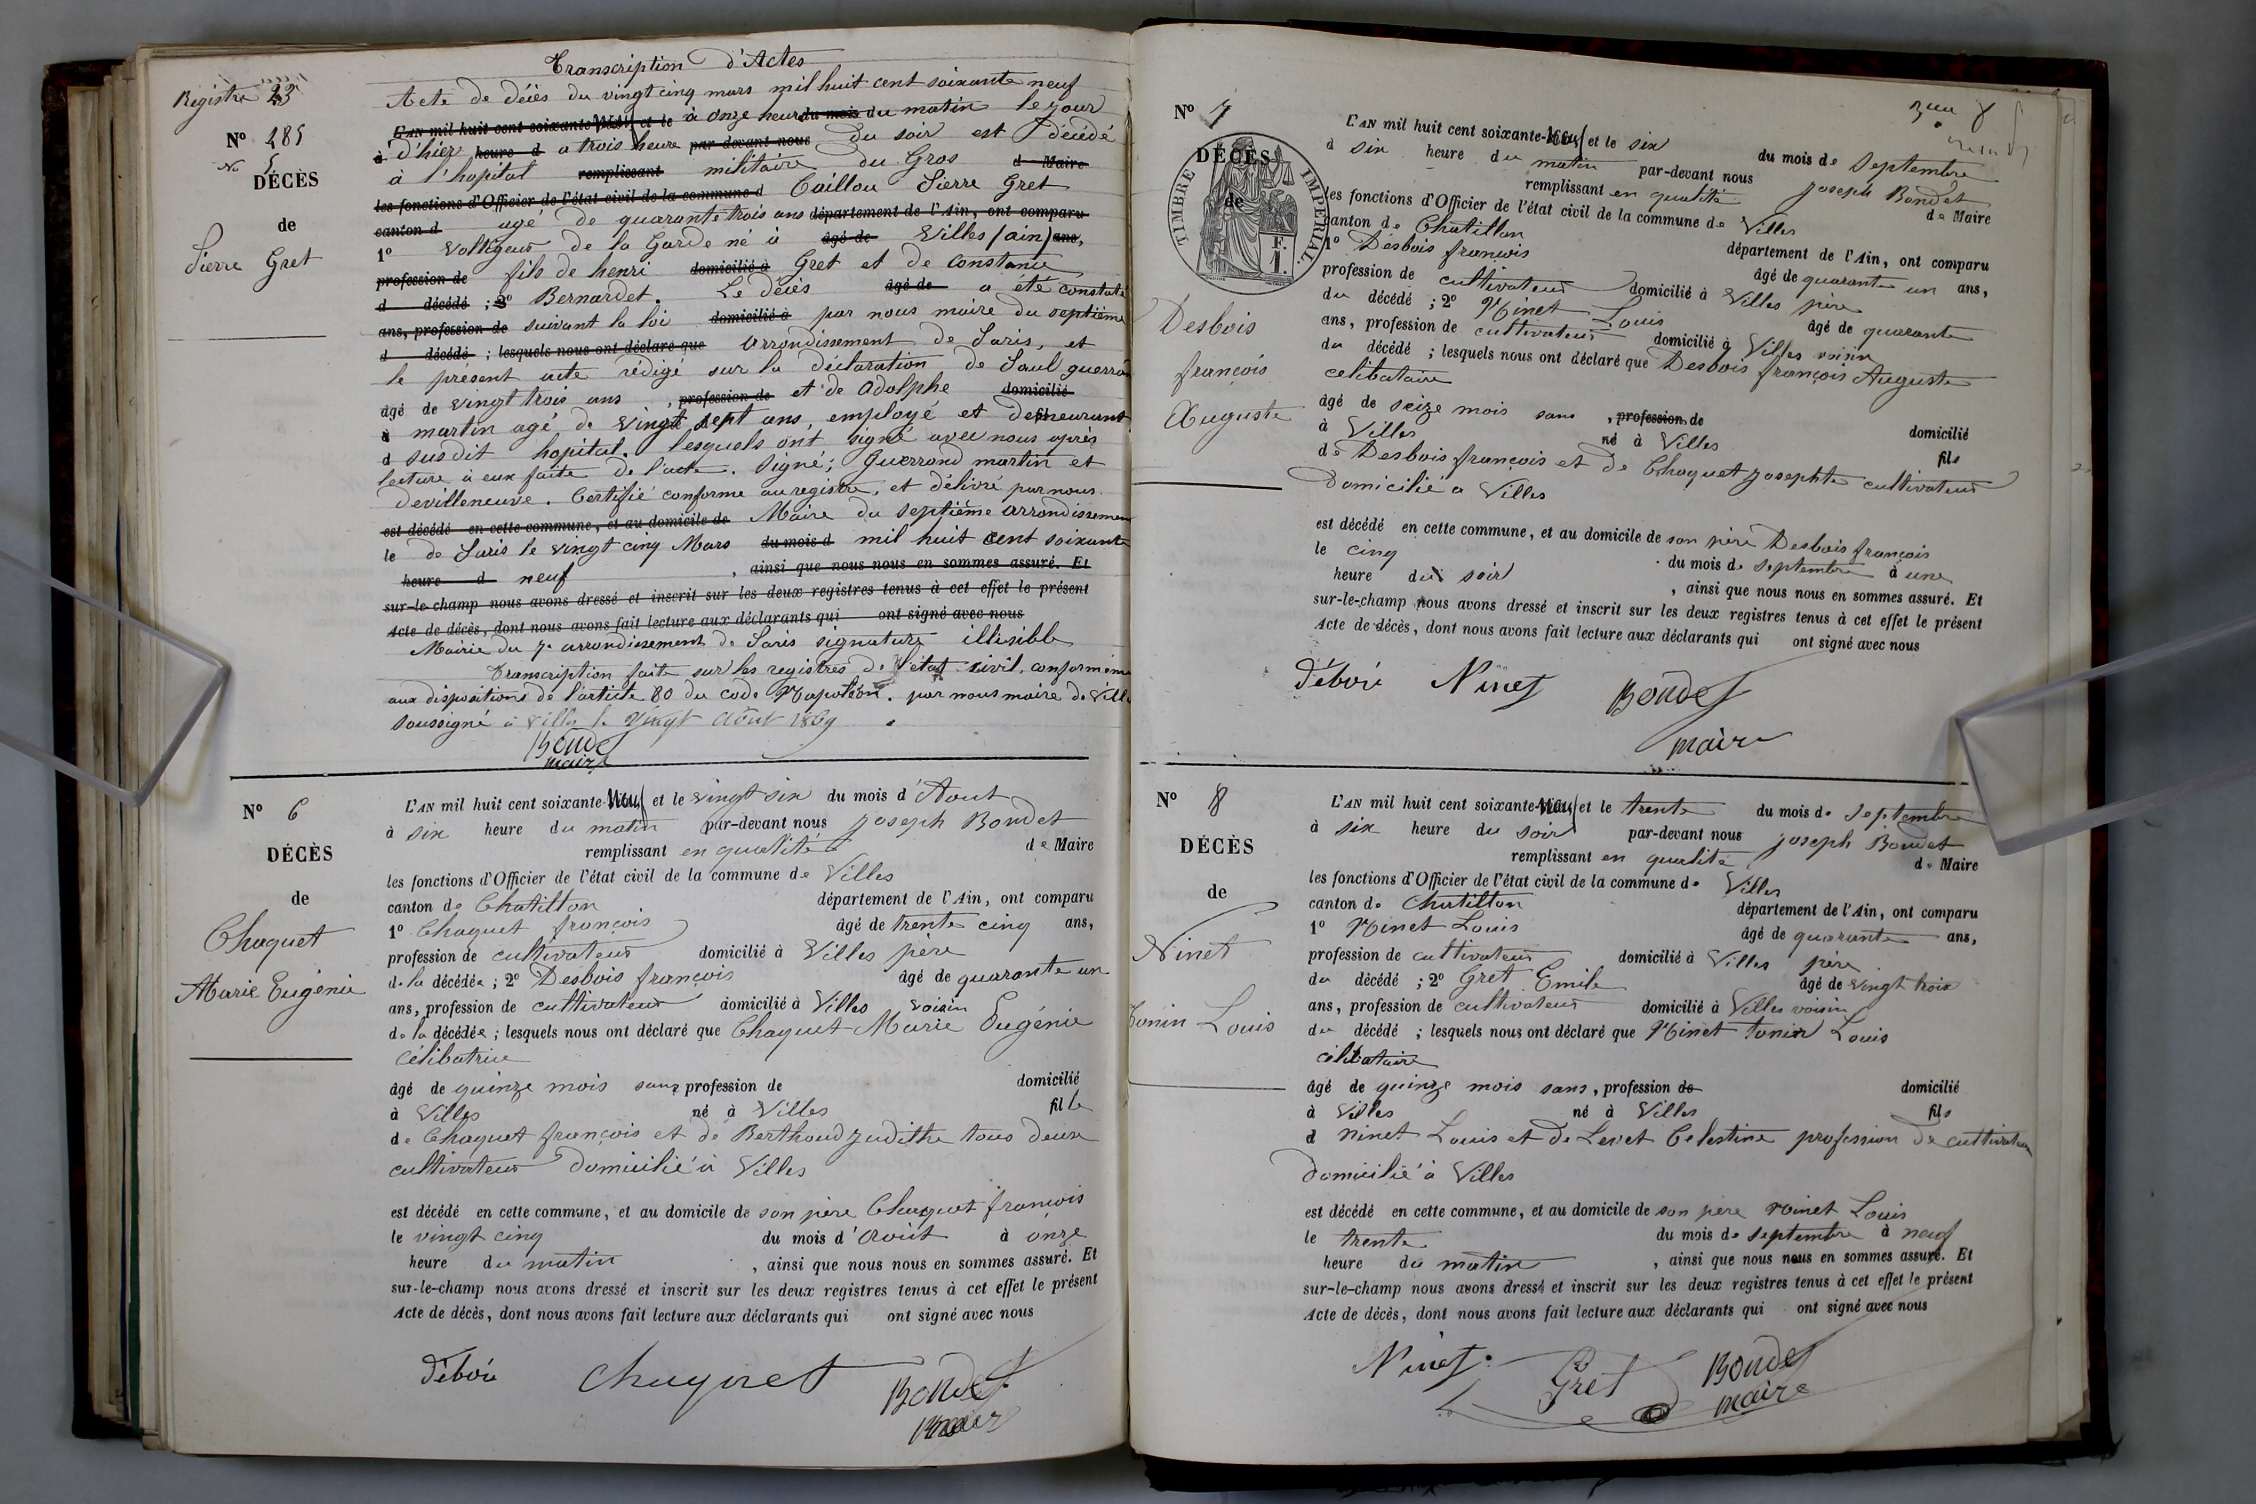 Transcription d'Actes
Registre 23
N° 285
N° 5
DÉCÈS
de
Pierre Gret
Acte de décès du vingt cinq mars mil huit cent soixante neuf
L'AN mil huit cent soixante-Neuf et le à onze heur du mois du matin le jour
à d'hier heure d a trois heure par-devant nous du soir est décédé
à l'hopital remplissant militaire du Gros d Maire
les fonctions d'Officier de l'état civil de la commune d Caillou Pierre Gret
canton d agé de quarante trois ans département de l'Ain, ont comparu
1° Voltigeur de la Garde né à âgé de Villes (ain) ans,
profession de fils de henri domicilié à Gret et de Constance
d décédé ; 2° Bernardet. Le décès âgé de a été constaté
ans, profession de suivant la loi domicilié à par nous maire du septième
d décédé ; lesquels nous ont déclaré que arrondissement de Paris, et
le présent acte rédigé sur la déclaration de Paul
âgé de vingt trois ans , profession de et de Adolphe domicilié
à martin agé de vingt sept ans, employé et demeurant
d susdit hopital. lesquels ont signé avec nous après
lecture à eux faite de l'acte. Signé; Guerrand martin et
devilleneuve. Certifié conforme au registre, et délivré par nous
est décédé en cette commune, et au domicile de Maire du septième arrondissement
le de Paris le vingt cinq Mars du mois d mil huit cent soixante
heure d neuf , ainsi que nous nous en sommes assuré. Et
sur-le-champ nous avons dressé et inscrit sur les deux registres tenus à cet effet le présent
Acte de décès, dont nous avons fait lecture aux déclarants qui ont signé avec nous
Mairie du 7e arrondissement de Paris signature illisible
Transcription faite sur les registres de l'état civil, conformémen
aux dispositions de l'article 80 du code Napoléon. par nous maire de Ville
soussigné à Villes le vingt Août 1869
Bondet
maire
N° 6
DÉCÈS
de
Chaquet
Marie Eugénie
L'AN mil huit cent soixante-Neuf et le vingt six du mois d'Aout
à six heure du matin par-devant nous Joseph Bondet
remplissant en qualité de Maire
les fonctions d'Officier de l'état civil de la commune de Villes
canton de Chatillon département de l'Ain, ont comparu
1° Chaquet françois âgé de trente cinq ans,
profession de cultivateur domicilié à Villes père
de la décédée ; 2° Desbois françois âgé de quarante un
ans, profession de cultivateur domicilié à Villes voisin
de la décédée ; lesquels nous ont déclaré que Chaquet Marie Eugénie
célibatrice
âgé de quinze mois sans profession de domicilié
à Villes né à Villes fille
de Chaquet françois et de Berthoud Judithe tous deux
cultivateur domicilié à Villes
est décédé en cette commune, et au domicile de son père Chaquet françois
le vingt cinq du mois d'Août à onze
heure du matin , ainsi que nous nous en sommes assuré. Et
sur-le-champ nous avons dressé et inscrit sur les deux registres tenus à cet effet le présent
Acte de décès, dont nous avons fait lecture aux déclarants qui ont signé avec nous
Déboi Chaquet Bondet
maire
N° 7
DÉCÈS
de
TIMBRE IMPÉRIAL
1 F.
Desbois
françois
Auguste
L'AN mil huit cent soixante-Neuf et le six du mois de Septembre
à six heure du matin par-devant nous Joseph Bondet
remplissant en qualité de Maire
les fonctions d'Officier de l'état civil de la commune de Villes
canton de Chatillon département de l'Ain, ont comparu
1° Desbois françois âgé de quarante un ans,
profession de cultivateur domicilié à Villes père
du décédé ; 2° Ninet Louis âgé de quarante
ans, profession de cultivateur domicilié à Villes voisin
du décédé ; lesquels nous ont déclaré que Desbois françois Auguste
celibataire
âgé de seize mois sans , profession de domicilié
à Villes né à Villes fils
de Desbois françois et de Chaquet Josephte cultivateur
Domicilié a Villes
est décédé en cette commune, et au domicile de son père Desbois françois
le cinq du mois de septembre à une
heure du soir , ainsi que nous nous en sommes assuré. Et
sur-le-champ nous avons dressé et inscrit sur les deux registres tenus à cet effet le présent
Acte de décès, dont nous avons fait lecture aux déclarants qui ont signé avec nous
Déboi Ninet Bondet
maire
N° 8
DÉCÈS
de
Ninet
Tonin Louis
L'AN mil huit cent soixante-Neuf et le trente du mois de Septembre
à six heure du soir par-devant nous Joseph Bondet
remplissant en qualité de Maire
les fonctions d'Officier de l'état civil de la commune de Villes
canton de Chatillon département de l'Ain, ont comparu
1° Ninet Louis âgé de quarante ans,
profession de cultivateur domicilié à Villes père
du décédé ; 2° Gret Emile âgé de vingt trois
ans, profession de cultivateur domicilié à Villes voisin
du décédé ; lesquels nous ont déclaré que Ninet tonin Louis
célibataire
âgé de quinze mois sans, profession de domicilié
à Villes né à Villes fils
d Ninet Louis et de Levet Celestine profession de cultivateur
domicilié à Villes
est décédé en cette commune, et au domicile de son père Ninet Louis
le trente du mois de septembre à neuf
heure du matin , ainsi que nous nous en sommes assuré. Et
sur-le-champ nous avons dressé et inscrit sur les deux registres tenus à cet effet le présent
Acte de décès, dont nous avons fait lecture aux déclarants qui ont signé avec nous
Ninet Gret Bondet
maire